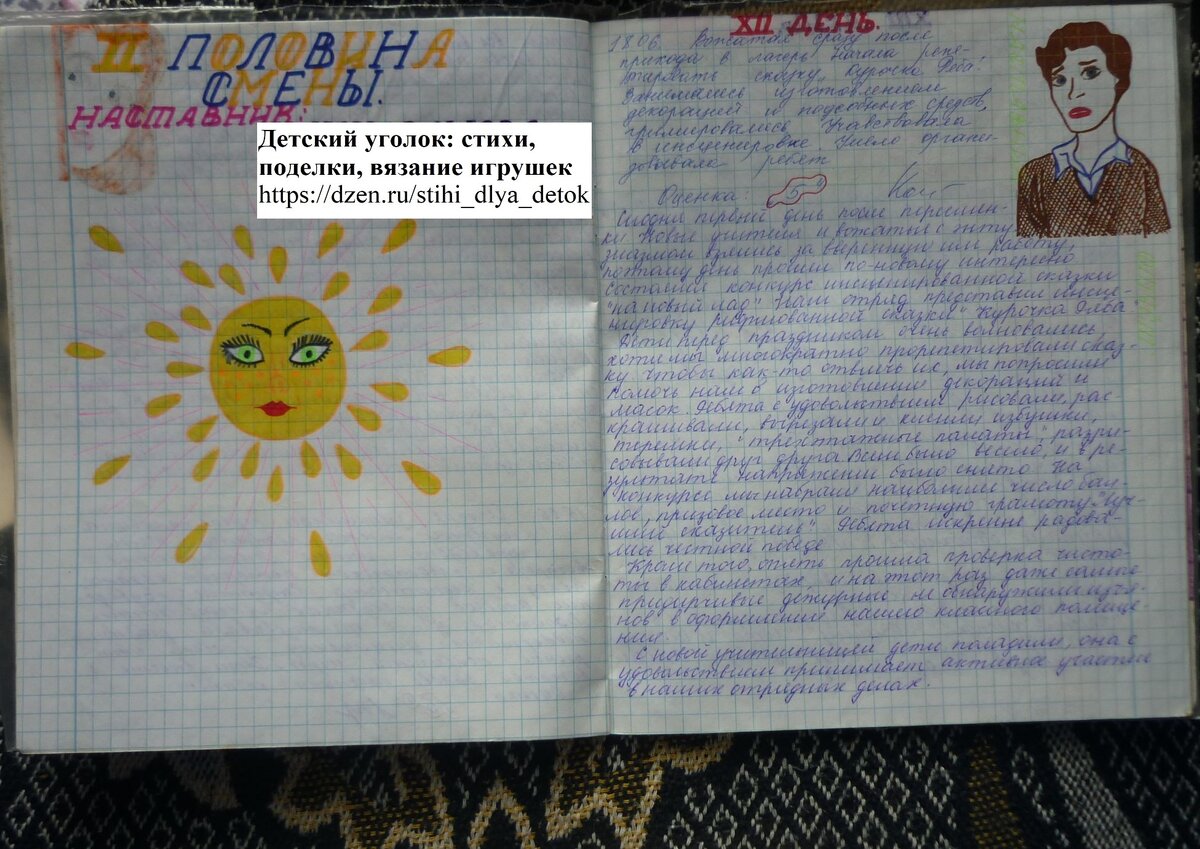 II ПОЛОВИНА
СМЕНЫ.
НАСТАВНИК:
Детский уголок: стихи,
поделки, вязание игрушек
https://dzen.ru/stihi_dlya_detok
XII ДЕНЬ.
18.06. Вожатая сразу после
прихода в лагерь начала репе-
тировать сказку "Курочка Ряба".
Занималась изготовлением
декораций и подсобных средств,
гримировалась. Участвовала
в инсценировке. Умело органи-
зовывала ребят
Оценка: "5"
Сегодня первый день после пересмен-
ки. Новые учителя и вожатые с энту-
зиазмом взялись за вверенную им работу,
поэтому день прошёл по-новому интересно
состоялся конкурс инсценированной сказки
"на новый лад". Наш отряд представил инсце-
нировку рифмованной сказки "Курочка Ряба"
Дети перед праздником очень волновались,
хотя мы многократно прорепетировали сказ-
ку. Чтобы как-то отвлечь их, мы попросили
помочь нам в изготовлении декораций и
масок. Ребята с удовольствием рисовали, рас
крашивали, вырезали и клеили избушки,
теремки, "трехэтажные палаты", разри-
совывали друг друга. Всем было весело, и в ре-
зультате напряжение было снято. На
конкурсе мы набрали наибольшее число бал-
лов, призовое место и почетную грамоту "Луч-
ший сказитель". Ребята искренне радова-
лись честной победе
Кроме того, опять прошла проверка чисто-
ты в кабинетах, и на этот раз даже самые
придирчивые дежурные не обнаружили изъя-
нов в оформлении нашего классного помеще
ния.
С новой учительницей дети поладили, она с
удовольствием принимает активное участие
в наших отрядных делах.